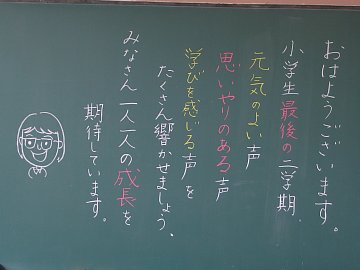 おはようございます。
小学生最後の二学期、
元気のよい声
思いやりのある声
学びを感じる声を
たくさん響かせましょう。
みなさん一人一人の成長を
期待しています。